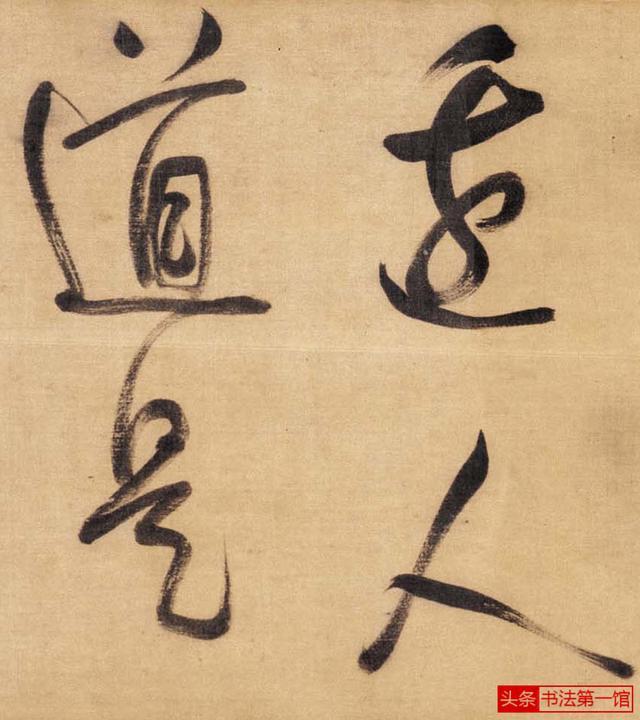 人
道是
头条 书法第一馆